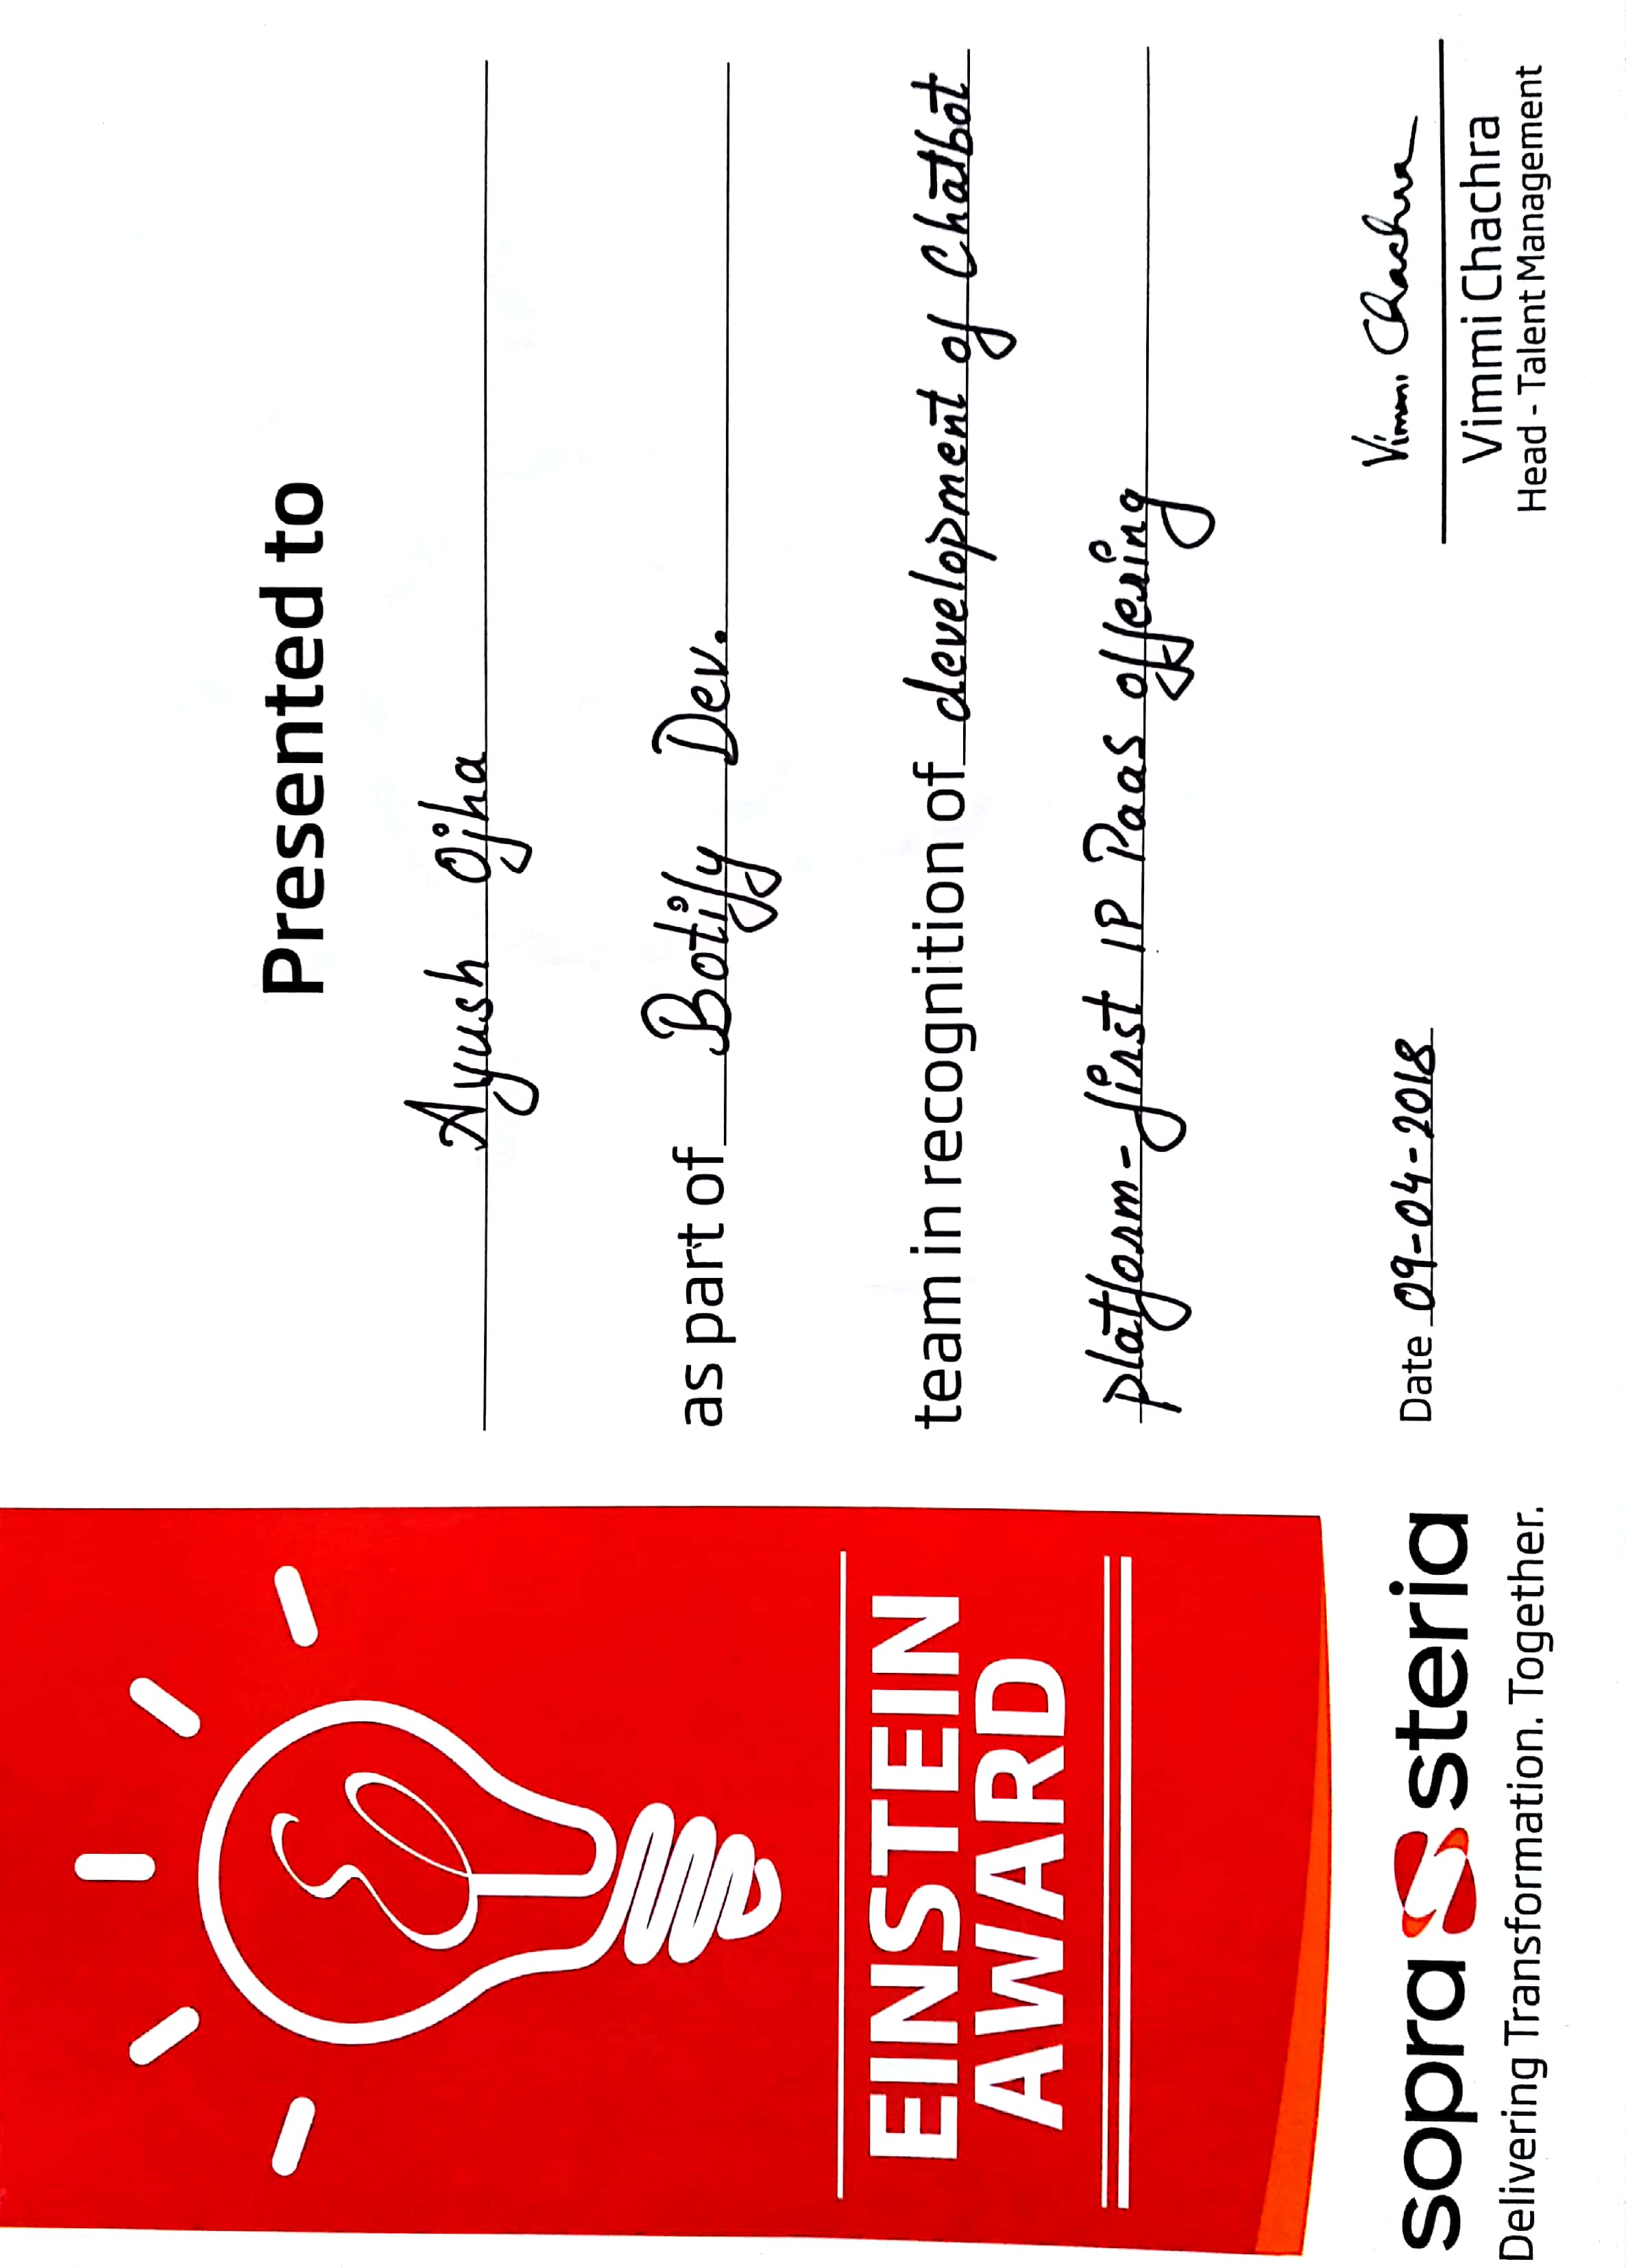 EINSTEIN
AWARD
sopra steria
Delivering Transformation. Together.
Presented to
Ayush Ojha
as part of Botify Dev.
team in recognition of development of Chatbot
platform-first IP Paas offering
Date 09-04-2018
Vimmi Chachra
Vimmi Chachra
Head - Talent Management